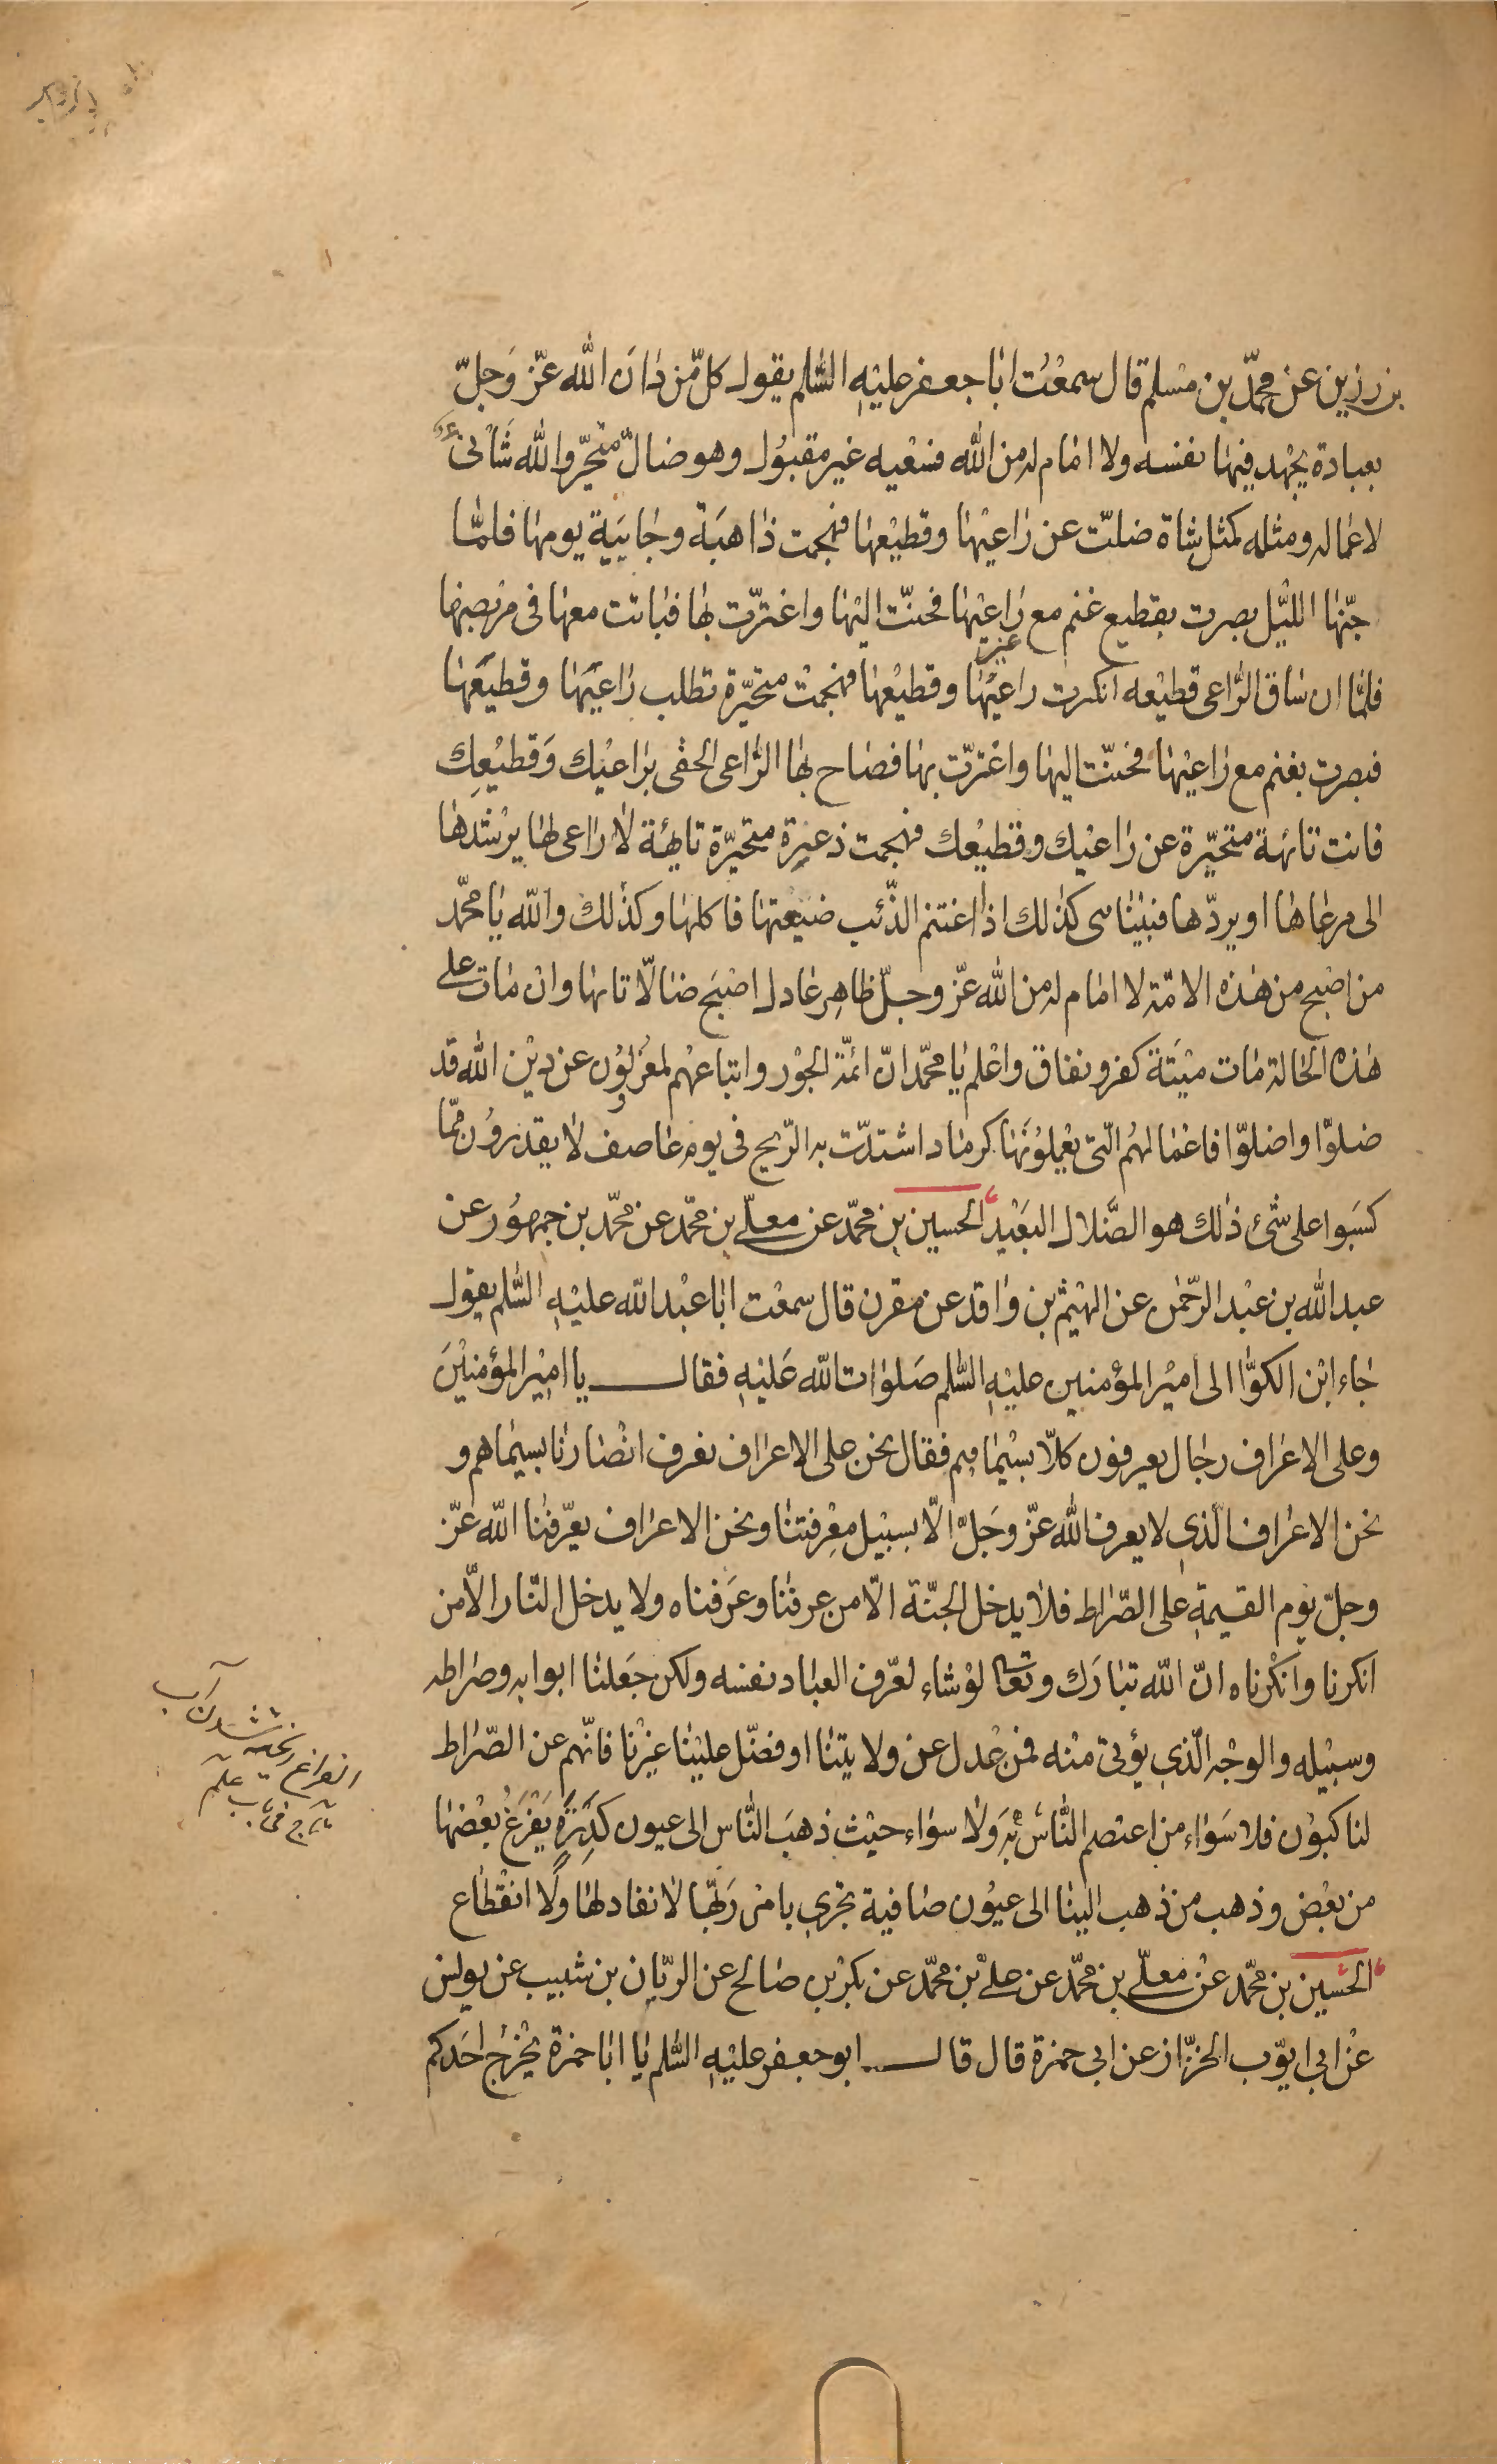 بن رزين عن محمّد بن مسلم قال سمعت ابا جعفر عليه السّلم يقول كلّ من دان الله عزّ وجلّ
بعبادة يجهد فيها نفسه ولا امام له من الله فسعيه غير مقبول وهو ضالّ متحيّر والله شانئ
لاعماله ومثله كمثل شاة ضلّت عن راعيها وقطيعها فهجمت ذاهبة وجايية يومها فلمّا
جنّها اللّيل بصرت بقطيع غنم مع راعيها فحنّت اليها واغترّت بها فباتت معها في مربضها
فلمّا ان ساق الرّاعي قطيعه انكرت راعيها وقطيعها فهجمت متحيّرة تطلب راعيها وقطيعها
فبصرت بغنم مع راعيها فحنّت اليها واغترّت بها فصاح بها الرّاعي الحقي براعيك وقطيعك
فانت تائهة متحيّرة عن راعيك وقطيعك فهجمت ذعرة متحيّرة تايهة لا راعي لها يرشدها
الى مرعاها او يردّها فبيناهى كذلك اذا اغتنم الذّئب ضيعتها فاكلها وكذلك والله يا محمّد
من اصبح من هذه الامّة لا امام له من الله عزّ وجلّ ظاهر عادل اصبح ضالّا تائها وان مات على
هذه الحالة مات ميتة كفر ونفاق واعلم يا محمّد انّ ائمّة الجور واتباعهم لمعزولون عن دين الله قد
ضلّوا واضلّوا فاعمالهم الّتى يعملونها كرماد اشتدّت به الرّيح في يوم عاصف لا يقدرون ممّا
كسبوا على شئ ذلك هو الضّلال البعيد الحسين بن محمّد عن معلّى بن محمّد عن محمّد بن جمهور عن
عبد الله بن عبد الرّحمن عن الهيثم بن واقد عن مقرن قال سمعت ابا عبد الله عليه السّلم يقول
جاء ابن الكوّا الى امير المؤمنين عليه السّلم صلوات الله عليه فقال يا امير المؤمنين
وعلى الاعراف رجال يعرفون كلّا بسيماهم فقال نحن على الاعراف نعرف انصارنا بسيماهم و
نحن الاعراف الّذي لا يعرف الله عزّ وجلّ الّا بسبيل معرفتنا ونحن الاعراف يعرّفنا الله عزّ
وجلّ يوم القيمة على الصّراط فلا يدخل الجنّة الّا من عرفنا وعرفناه ولا يدخل النّار الّا من
انكرنا وانكرناه انّ الله تبارك وتعالى لو شاء لعرّف العباد نفسه ولكن جعلنا ابوابه وصراطه
وسبيله والوجه الّذي يؤتى منه فمن عدل عن ولايتنا او فضّل علينا غيرنا فانّهم عن الصّراط
لناكبون فلا سواء من اعتصم النّاس به ولا سواء حيث ذهب النّاس الى عيون كدرة يفرغ بعضها
من بعض وذهب من ذهب الينا الى عيون صافية تجري بامر ربّها لا نفاد لها ولا انقطاع
الحسين بن محمّد عن معلّى بن محمّد عن علىّ بن محمّد عن بكر بن صالح عن الريّان بن شبيب عن يونس
عن ابي ايّوب الخزّاز عن ابي حمزة قال قال ابو جعفر عليه السّلم يا ابا حمزة يخرج احدكم